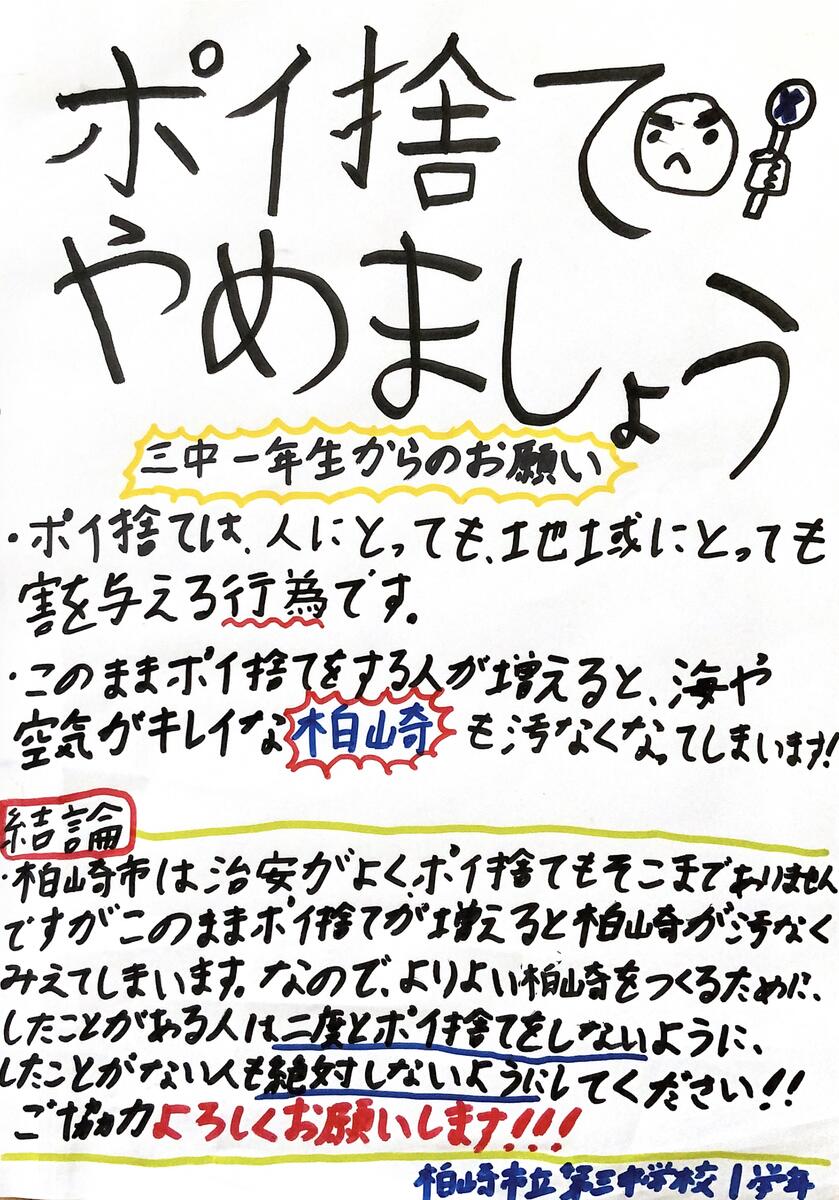 ポイ捨て
やめましょう
三中一年生からのお願い
・ポイ捨ては、人にとっても、地域にとっても
害を与える行為です。
・このままポイ捨てをする人が増えると、海や
空気がキレイな柏崎も汚なくなってしまいます!
結論
・柏崎市は治安がよく、ポイ捨てもそこまでありません
ですがこのままポイ捨てが増えると柏崎が汚なく
みえてしまいます。なので、よりよい柏崎をつくるために、
したことがある人は二度とポイ捨てをしないように、
したことがない人も絶対しないようにしてください!!
ご協力よろしくお願いします!!!
柏崎市立第三中学校1学年